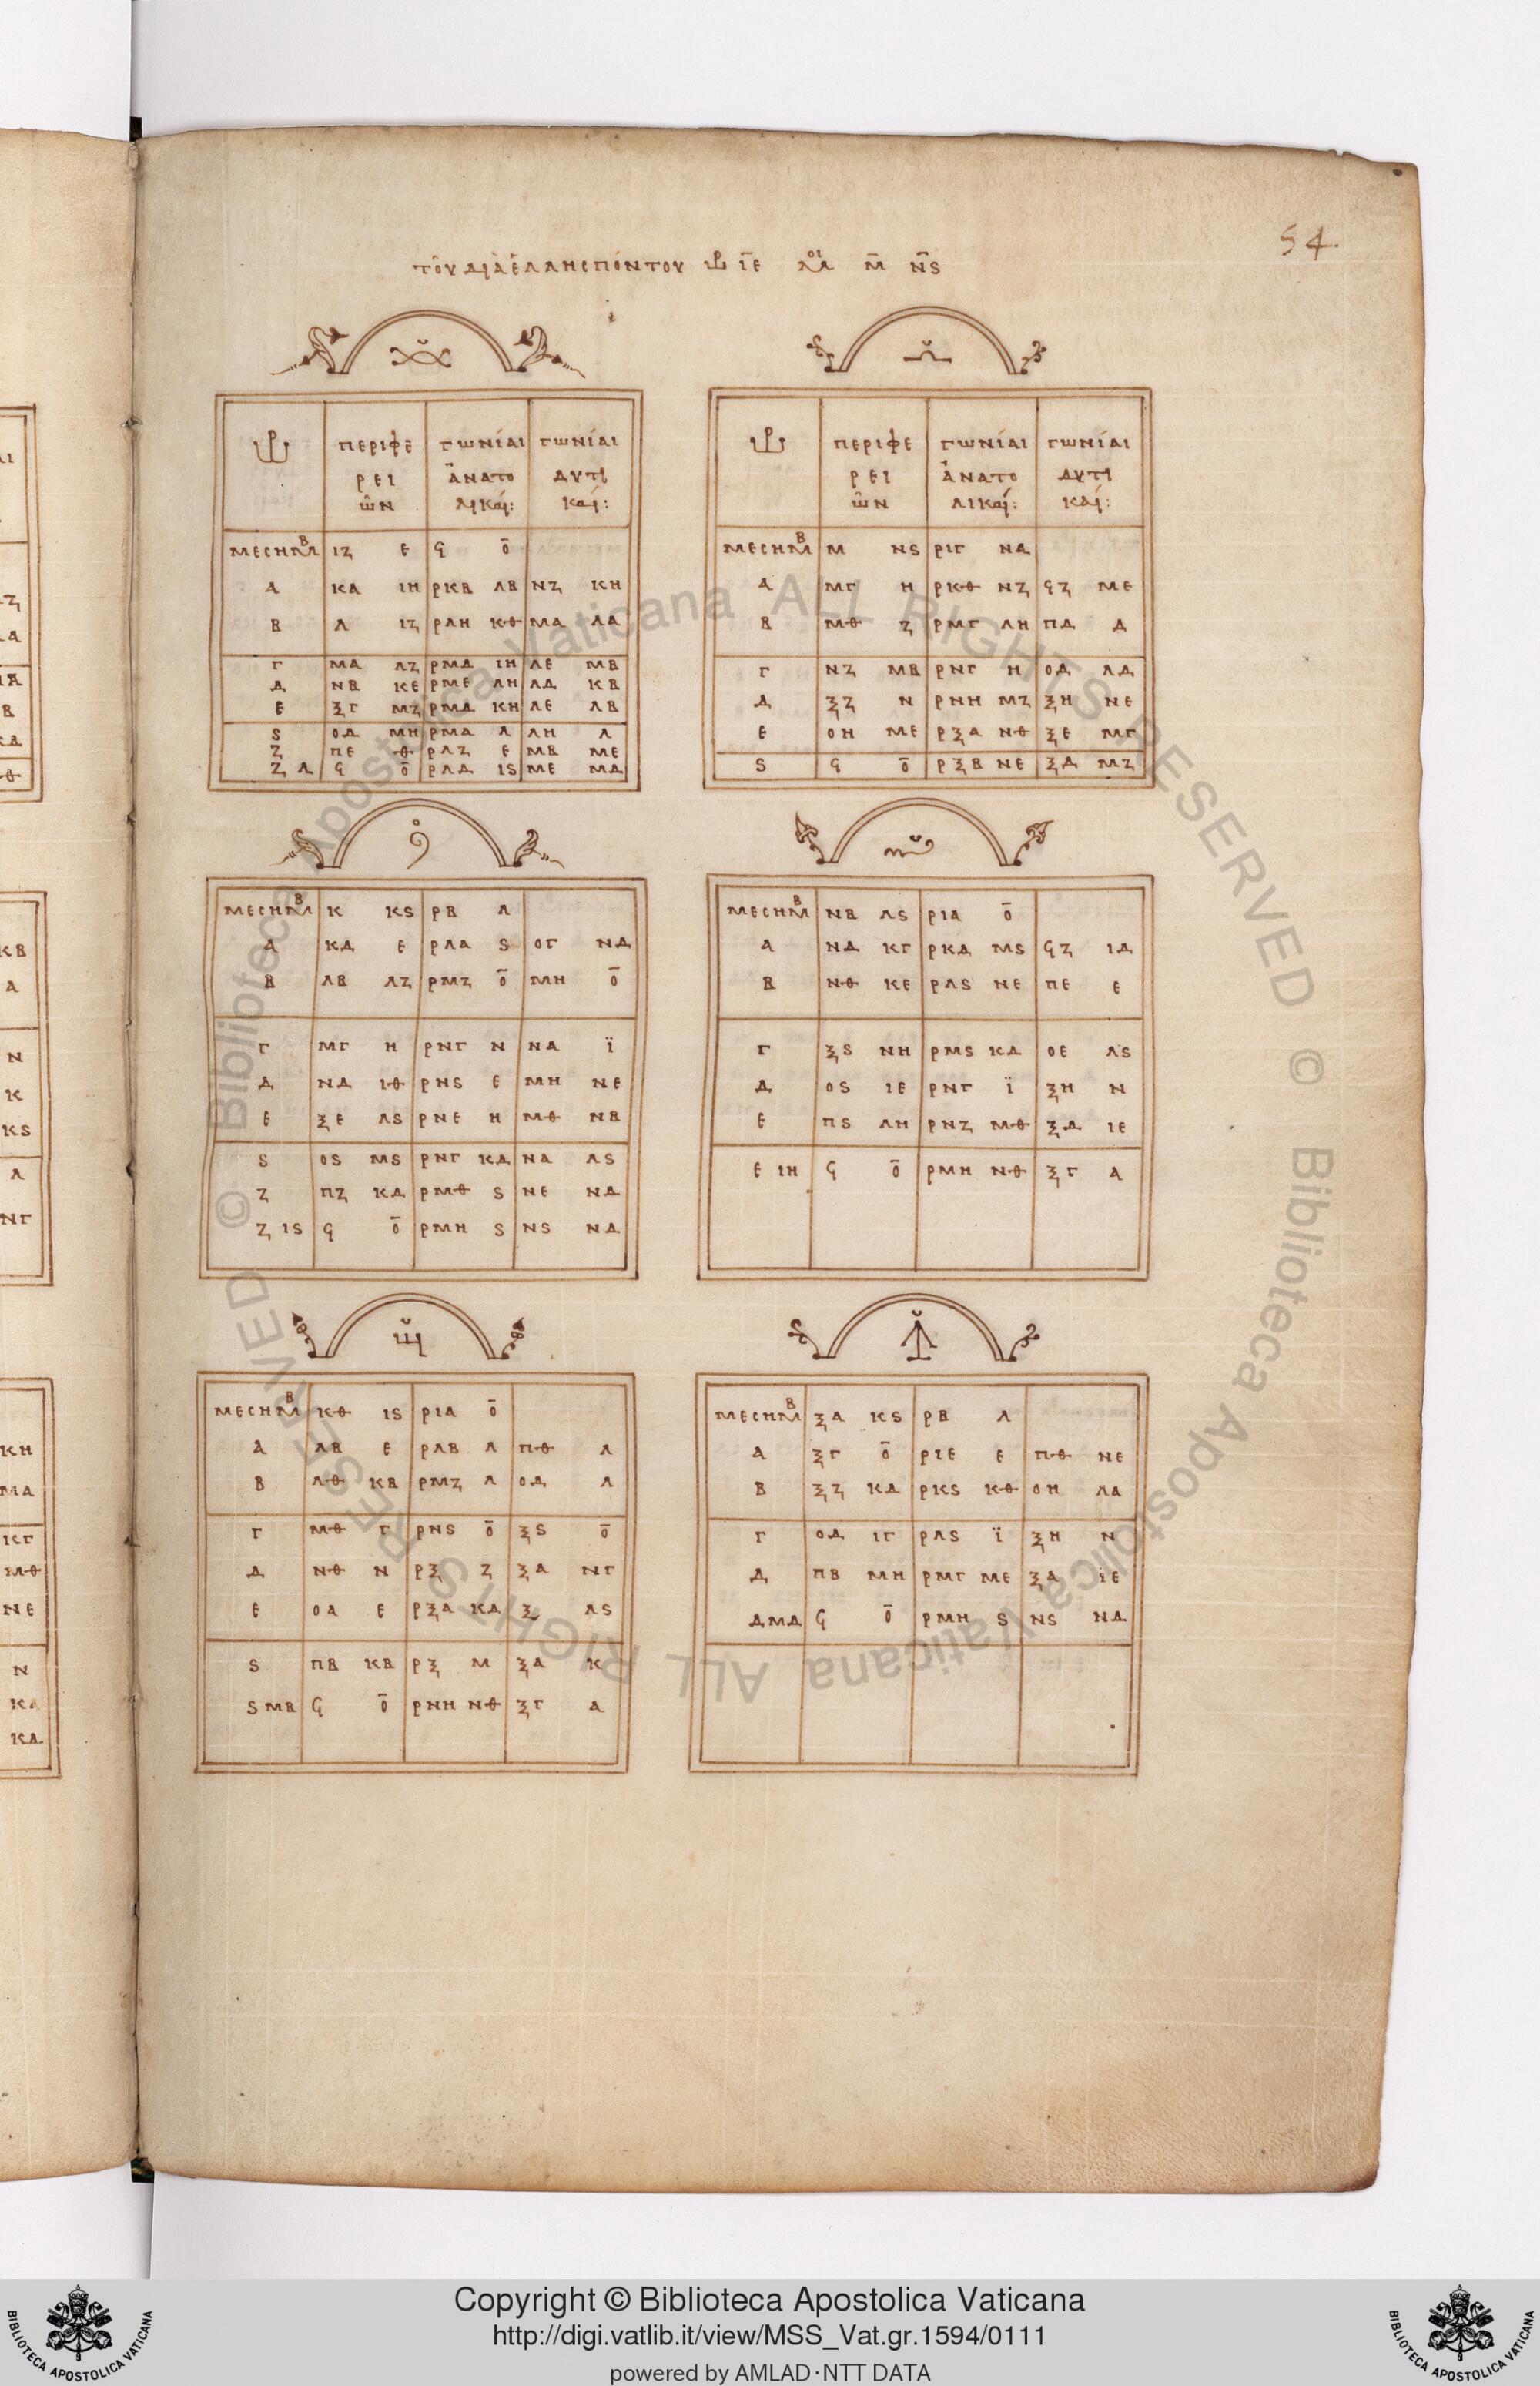 54.
τοῦ διὰ ἑλλησπόντου ὡρ ιε μοι μ νς
ὡρ περιφε γωνίαι γωνίαι
ρει ἀνατο δυτι
ῶν λικαί: καί:
μεσημβ ιζ ε ϙ ο
α κα ιη ρκβ λβ νζ κη
β λ ιζ ρλη κθ μα λα
γ μα λζ ρμδ ιη λε μβ
δ νβ κε ρμε λη λδ κβ
ε ξγ μζ ρμδ κη λε λβ
ς οδ μη ρμα λ λη λ
ζ πε θ ρλζ ε μβ με
ζ λ ϙ ο ρλδ ις με μδ
ὡρ περιφε γωνίαι γωνίαι
ρει ἀνατο δυτι
ῶν λικαί: καί:
μεσημβ μ νς ριγ να
α μγ η ρκθ νζ ϙζ με
β μθ ζ ρμγ λη πδ δ
γ νζ μβ ρνγ η οδ λδ
δ ξζ ν ρνη μζ ξη νε
ε οη με ρξα νθ ξε μγ
ς ϙ ο ρξβ νε ξδ μζ
μεσημβ κ κς ρβ λ
α κδ ε ρλα ς ογ νδ
β λβ λζ ρμζ ο μη ο
γ μγ η ρνγ ν να ϊ
δ νδ ιθ ρνς ε μη νε
ε ξε λς ρνε η μθ νβ
ς ος μς ρνγ κδ να λς
ζ πζ κδ ρμθ ς νε νδ
ζ ις ϙ ο ρμη ς νς νδ
μεσημβ νβ λς ρια ο
α νδ κγ ρκδ μς ϙζ ιδ
β νθ κε ρλς νε πε ε
γ ξς νη ρμς κδ οε λς
δ ος ιε ρνγ ϊ ξη ν
ε πς λη ρνζ μθ ξδ ιε
ε ιη ϙ ο ρμη νθ ξγ α
μεσημβ κθ ις ρια ο
α λβ ε ρλβ λ πθ λ
β λθ κβ ρμζ λ οδ λ
γ μθ γ ρνς ο ξς ο
δ νθ ν ρξ ζ ξα νγ
ε οα ε ρξα κδ ξ λς
ς πβ κβ ρξ μ ξα κ
ς μβ ϙ ο ρνη νθ ξγ α
μεσημβ ξα κς ρβ λ
α ξγ ο ριε ε πθ νε
β ξζ κδ ρκς κθ οη λα
γ οδ ιγ ρλς ϊ ξη ν
δ πβ μη ρμγ με ξα ιε
δ μδ ϙ ο ρμη ς νς νδ
© Biblioteca Apostolica Vaticana ALL RIGHTS RESERVED
© Biblioteca Apostolica Vaticana ALL RIGHTS RESERVED
Copyright © Biblioteca Apostolica Vaticana
http://digi.vatlib.it/view/MSS_Vat.gr.1594/0111
powered by AMLAD·NTT DATA
BIBLIOTECA APOSTOLICA VATICANA
BIBLIOTECA APOSTOLICA VATICANA